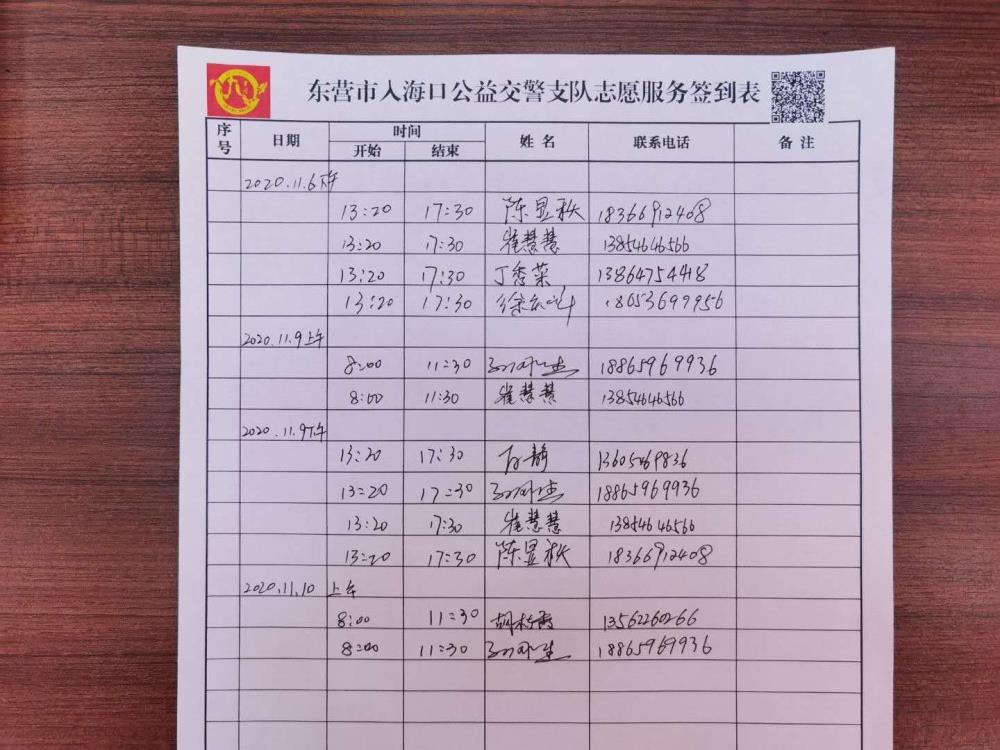 东营市入海口公益交警支队志愿服务签到表
序号 日期 时间 姓名 联系电话 备注
开始 结束
2020.11.6下午
13:20 17:30 陈显秋 18366912408
13:20 17:30 崔慧慧 13854646566
13:20 17:30 丁秀菜 13864754418
13:20 17:30 18653699956
2020.11.9上午
8:00 11:30 18865969936
8:00 11:30 崔慧慧 13854646566
2020.11.9下午
13:20 17:30 石静 13605469836
13:20 17:30 18865969936
13:20 17:30 崔慧慧 13854646566
13:20 17:30 陈显秋 18366912408
2020.11.10 上午
8:00 11:30 13562260266
8:00 11:30 18865969936